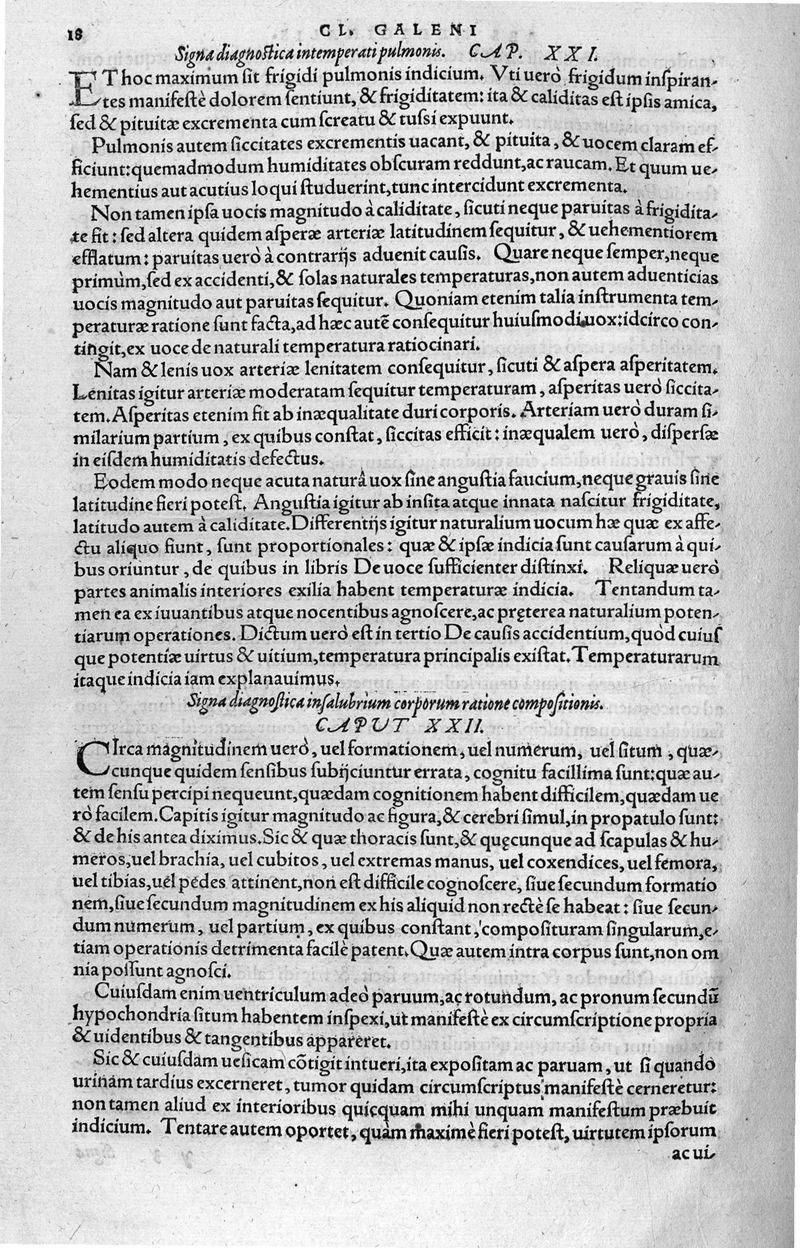 18
CL. GALENI
Signa diagnostica intemperati pulmonis. CAP. XXI.
ET hoc maximum sit frigidi pulmonis indicium. Vti uerò frigidum inspiran-
tes manifestè dolorem sentiunt, & frigiditatem: ita & caliditas est ipsis amica,
sed & pituitæ excrementa cum screatu & tussi expuunt.
Pulmonis autem siccitates excrementis uacant, & pituita, & uocem claram ef-
ficiunt: quemadmodum humiditates obscuram reddunt, ac raucam. Et quum ue-
hementius aut acutius loqui studuerint, tunc intercidunt excrementa.
Non tamen ipsa uocis magnitudo à caliditate, sicuti neque paruitas à frigidita-
te fit: sed altera quidem asperæ arteriæ latitudinem sequitur, & uehementiorem
efflatum: paruitas uerò à contrarijs aduenit causis. Quare neque semper, neque
primùm, sed ex accidenti, & solas naturales temperaturas, non autem aduenticias
uocis magnitudo aut paruitas sequitur. Quoniam etenim talia instrumenta tem-
peraturæ ratione sunt facta, ad hæc autē consequitur huiusmodi uox: idcirco con-
tingit, ex uoce de naturali temperatura ratiocinari.
Nam & lenis uox arteriæ lenitatem consequitur, sicuti & aspera asperitatem.
Lenitas igitur arteriæ moderatam sequitur temperaturam, asperitas uerò siccita-
tem. Asperitas etenim fit ab inæqualitate duri corporis. Arteriam uerò duram si-
milarium partium, ex quibus constat, siccitas efficit: inæqualem uerò, dispersæ
in eisdem humiditatis defectus.
Eodem modo neque acuta naturâ uox sine angustia faucium, neque grauis sine
latitudine fieri potest. Angustia igitur ab insita atque innata nascitur frigiditate,
latitudo autem à caliditate. Differentijs igitur naturalium uocum hæ quæ ex affe-
ctu aliquo fiunt, sunt proportionales: quæ & ipsæ indicia sunt causarum à qui-
bus oriuntur, de quibus in libris De uoce sufficienter distinxi. Reliquæ uerò
partes animalis interiores exilia habent temperaturæ indicia. Tentandum ta-
men ea ex iuuantibus atque nocentibus agnoscere, ac pręterea naturalium poten-
tiarum operationes. Dictum uerò est in tertio De causis accidentium, quòd cuius
que potentiæ uirtus & uitium, temperatura principalis existat. Temperaturarum
itaque indicia iam explanauimus.
Signa diagnostica insalubrium corporum ratione compositionis.
CAPUT XXII.
CIrca magnitudinem uerò, uel formationem, uel numerum, uel situm, quæ-
cunque quidem sensibus subijciuntur errata, cognitu facillima sunt: quæ au-
tem sensu percipi nequeunt, quædam cognitionem habent difficilem, quædam ue
rò facilem. Capitis igitur magnitudo ac figura, & cerebri simul, in propatulo sunt:
& de his antea diximus. Sic & quæ thoracis sunt, & quęcunque ad scapulas & hu-
meros, uel brachia, uel cubitos, uel extremas manus, uel coxendices, uel femora,
uel tibias, uel pedes attinent, non est difficile cognoscere, siue secundum formatio
nem, siue secundum magnitudinem ex his aliquid non rectè se habeat: siue secun-
dum numerum, uel partium, ex quibus constant, composituram singularum, e-
tiam operationis detrimenta facilè patent. Quæ autem intra corpus sunt, non om
nia possunt agnosci.
Cuiusdam enim uentriculum adeò paruum, ac rotundum, ac pronum secundū
hypochondria situm habentem inspexi, ut manifestè ex circumscriptione propria
& uidentibus & tangentibus appareret.
Sic & cuiusdam uesicam cōtigit intueri, ita expositam ac paruam, ut si quando
urinam tardius excerneret, tumor quidam circumscriptus manifestè cerneretur:
non tamen aliud ex interioribus quicquam mihi unquam manifestum præbuit
indicium. Tentare autem oportet, quàm maximè fieri potest, uirtutem ipsorum
ac ui-